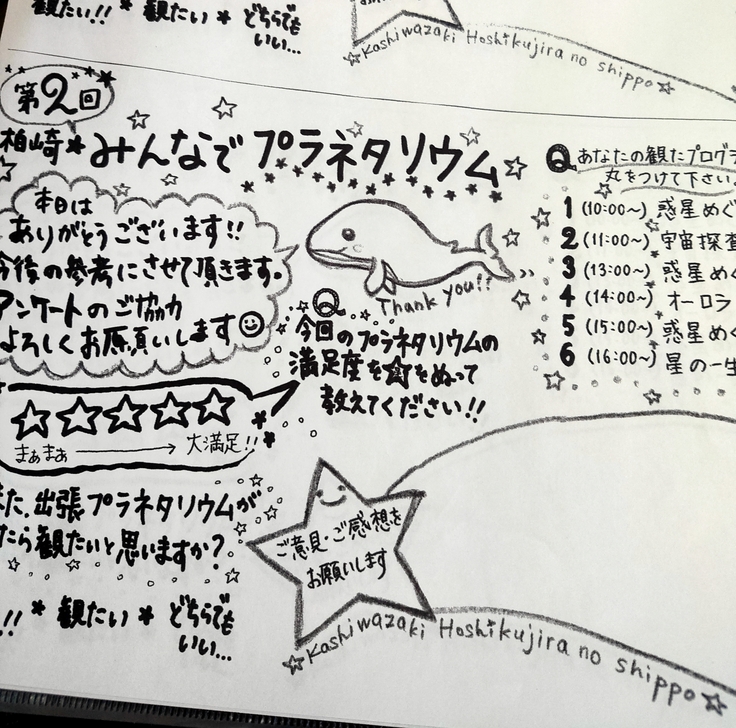 観たい!! * 観たい * どちらでも
いい...
☆Kashiwazaki Hoshikujira no shippo☆
第2回
柏崎★みんなでプラネタリウム
本日は
ありがとうございます!!
今後の参考にさせて頂きます。
アンケートのご協力
よろしくお願いします
Thank you!!
Q
今回のプラネタリウムの
満足度を☆をぬって
教えてください!!
☆☆☆☆☆
まぁまぁ → 大満足!!
Q あなたの観たプログラ
丸をつけて下さい。
1 (10:00~) 惑星めぐ
2 (11:00~) 宇宙探査
3 (13:00~) 惑星めぐ
4 (14:00~) オーロラ
5 (15:00~) 惑星めぐ
6 (16:00~) 星の一生
また、出張プラネタリウムが
たら観たいと思いますか?
!! * 観たい * どちらでも
いい...
ご意見・ご感想を
お願いします
☆Kashiwazaki Hoshikujira no shippo☆